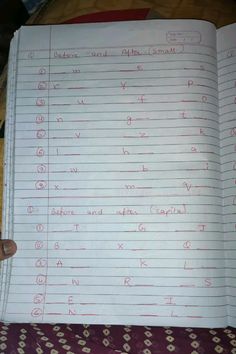 Q Before and After (small)
① __ m __ __ e __ __ s
② r __ __ y __ p __
③ __ u __ f __ o
④ n __ g __ t __
⑤ __ v __ z __ k
⑥ l __ h __ a __
⑦ __ w __ b __ i
⑧ x __ m __ q __
Q Before and after (capital)
① __ T __ G __ J
② B __ X __ Q __
③ A __ K __ L __
④ __ W __ R __ S
⑤ __ E __ I __
⑥ __ N __ L __